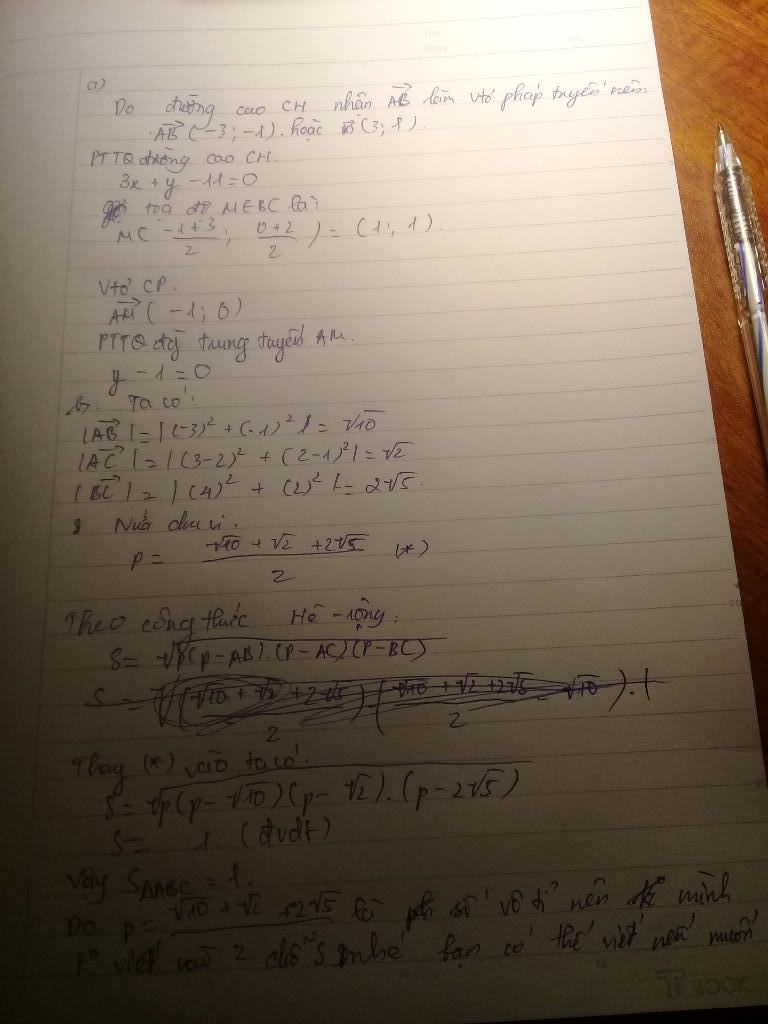 a)
Do đường cao CH nhận AB làm vtơ pháp tuyến nên:
AB (-3; -1). hoặc n (3; 1).
PTTQ đường cao CH.
3x + y - 11 = 0
toạ độ M∈BC là:
M( -1+3/2 ; 0+2/2 ) = (1; 1).
Vtơ CP.
AM ( -1; 0)
PTTQ đg trung tuyến AM.
y - 1 = 0
b. Ta có:
|AB| = |(-3)² + (-1)²| = √10
|AC| = |(3-2)² + (2-1)²| = √2
|BC| = |(4)² + (2)²| = 2√5.
Nửa chu vi.
p = √10 + √2 + 2√5 / 2 (*)
Theo công thức Hê-rông:
S = √p(p-AB).(P-AC)(P-BC)
Thay (*) vào ta có:
S = √p(p-√10)(p-√2).(p-2√5)
S = 1 (đvdt)
Vậy S∆ABC = 1.
Do p = √10 + √2 + 2√5 là số vô tỉ nên mình
k° viết vào 2 chỗ S nhé bạn có thể viết nếu muốn
BOOK